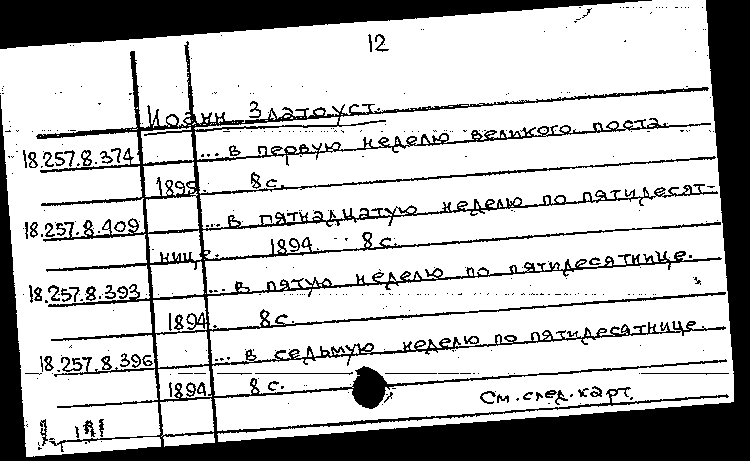 12
Иоанн Златоуст.
18.257.8.374 ... в первую неделю великого поста.
1895. 8 с.
18.257.8.409 ... в пятнадцатую неделю по пятидесят-
нице. 1894. 8 с.
18.257.8.393 ... в пятую неделю по пятидесятнице.
1894. 8 с.
18.257.8.396 ... в седьмую неделю по пятидесятнице.
1894 8 с.
См. след. карт.